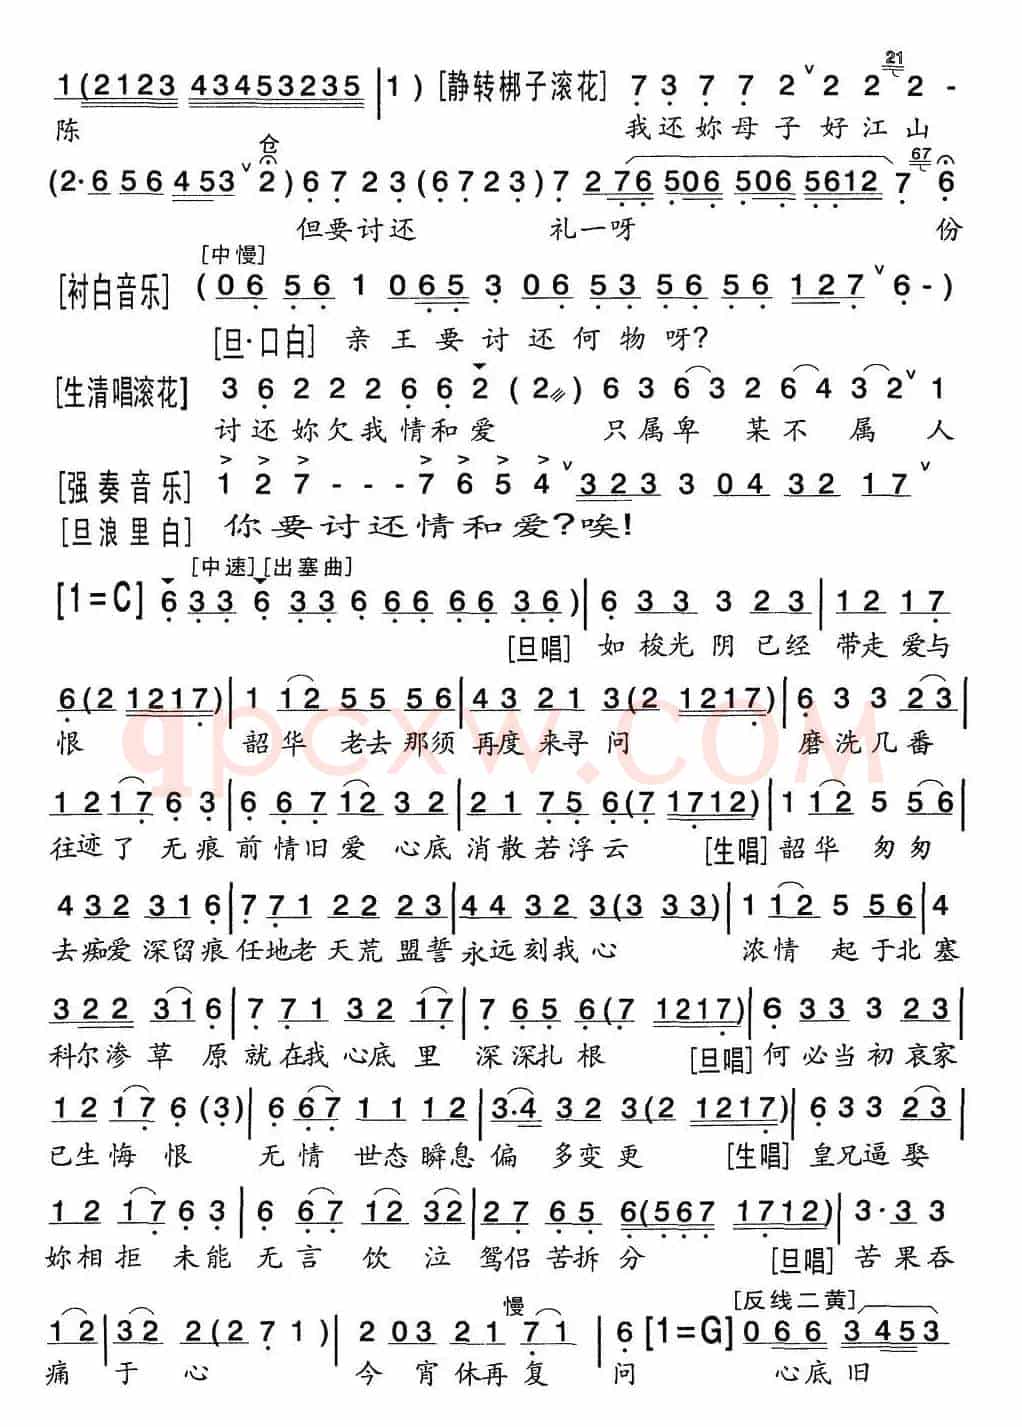 1(2123 43453235|1) [静转梆子滚花] 7 3 7 7 2ˇ2 2 21 2 -
陈 仓 我还妳母子好江山
(2·6 56 453ˇ2) 6 7 2 3 (6 7 2 3) 7 2 76 506 506 5612 7 67 6
但要讨还 礼一呀 份
[中慢]
[衬白音乐] (06 56 1 065 3 06 53 56 56 127ˇ6 -)
[旦·口白] 亲王要讨还何物呀?
[生清唱滚花] 3 6 2 2 2 6 6 2 (2) 6 3 6 3 2 6 4 3 2ˇ1
讨还妳欠我情和爱 只属卑某不属人
[强奏音乐] 1 2 7 - - - 7 6 5 4ˇ323 3 04 32 17ˇ
[旦浪里白] 你要讨还情和爱?唉!
[中速][出塞曲]
[1=C] 6 33 6 33 6 66 66 36)|6 33 3 23|12 17
[旦唱] 如梭光阴已经带走爱与
6(2 1217)|1 12 55 56|43 21 3(2 1217)|6 3 3 23|
恨 韶华老去那须再度来寻问 磨洗几番
12 17 6 3|6 67 12 32|21 75 6(7 1712)|1 12 5 56|
往迹了无痕前情旧爱心底消散若浮云 [生唱]韶华匆匆
4 32 31 6|7 71 22 23|44 32 3(3 33)|1 12 5 56|4
去痴爱深留痕任地老天荒盟誓永远刻我心 浓情起于北塞
322 31 6|7 71 32 17|7 65 6(7 1217)|6 33 3 23|
科尔渗草原就在我心底里深深扎根 [旦唱]何必当初哀家
12 17 6 (3)|6 67 11 12|3·4 32 3(2 1217)|6 33 23|
已生悔恨 无情世态瞬息偏多变更 [生唱]皇兄逼娶
12 17 6 3|6 67 12 32|27 65 6(567 1712)|3·3 3
妳相拒未能无言饮泣鸳侣苦拆分 [旦唱]苦果吞
慢 [反线二黄]
12|32 2(27 1)|2 03 21 71|6 [1=G] 066 3453
痛于心 今宵休再复问 心底旧
qpcxw.COM